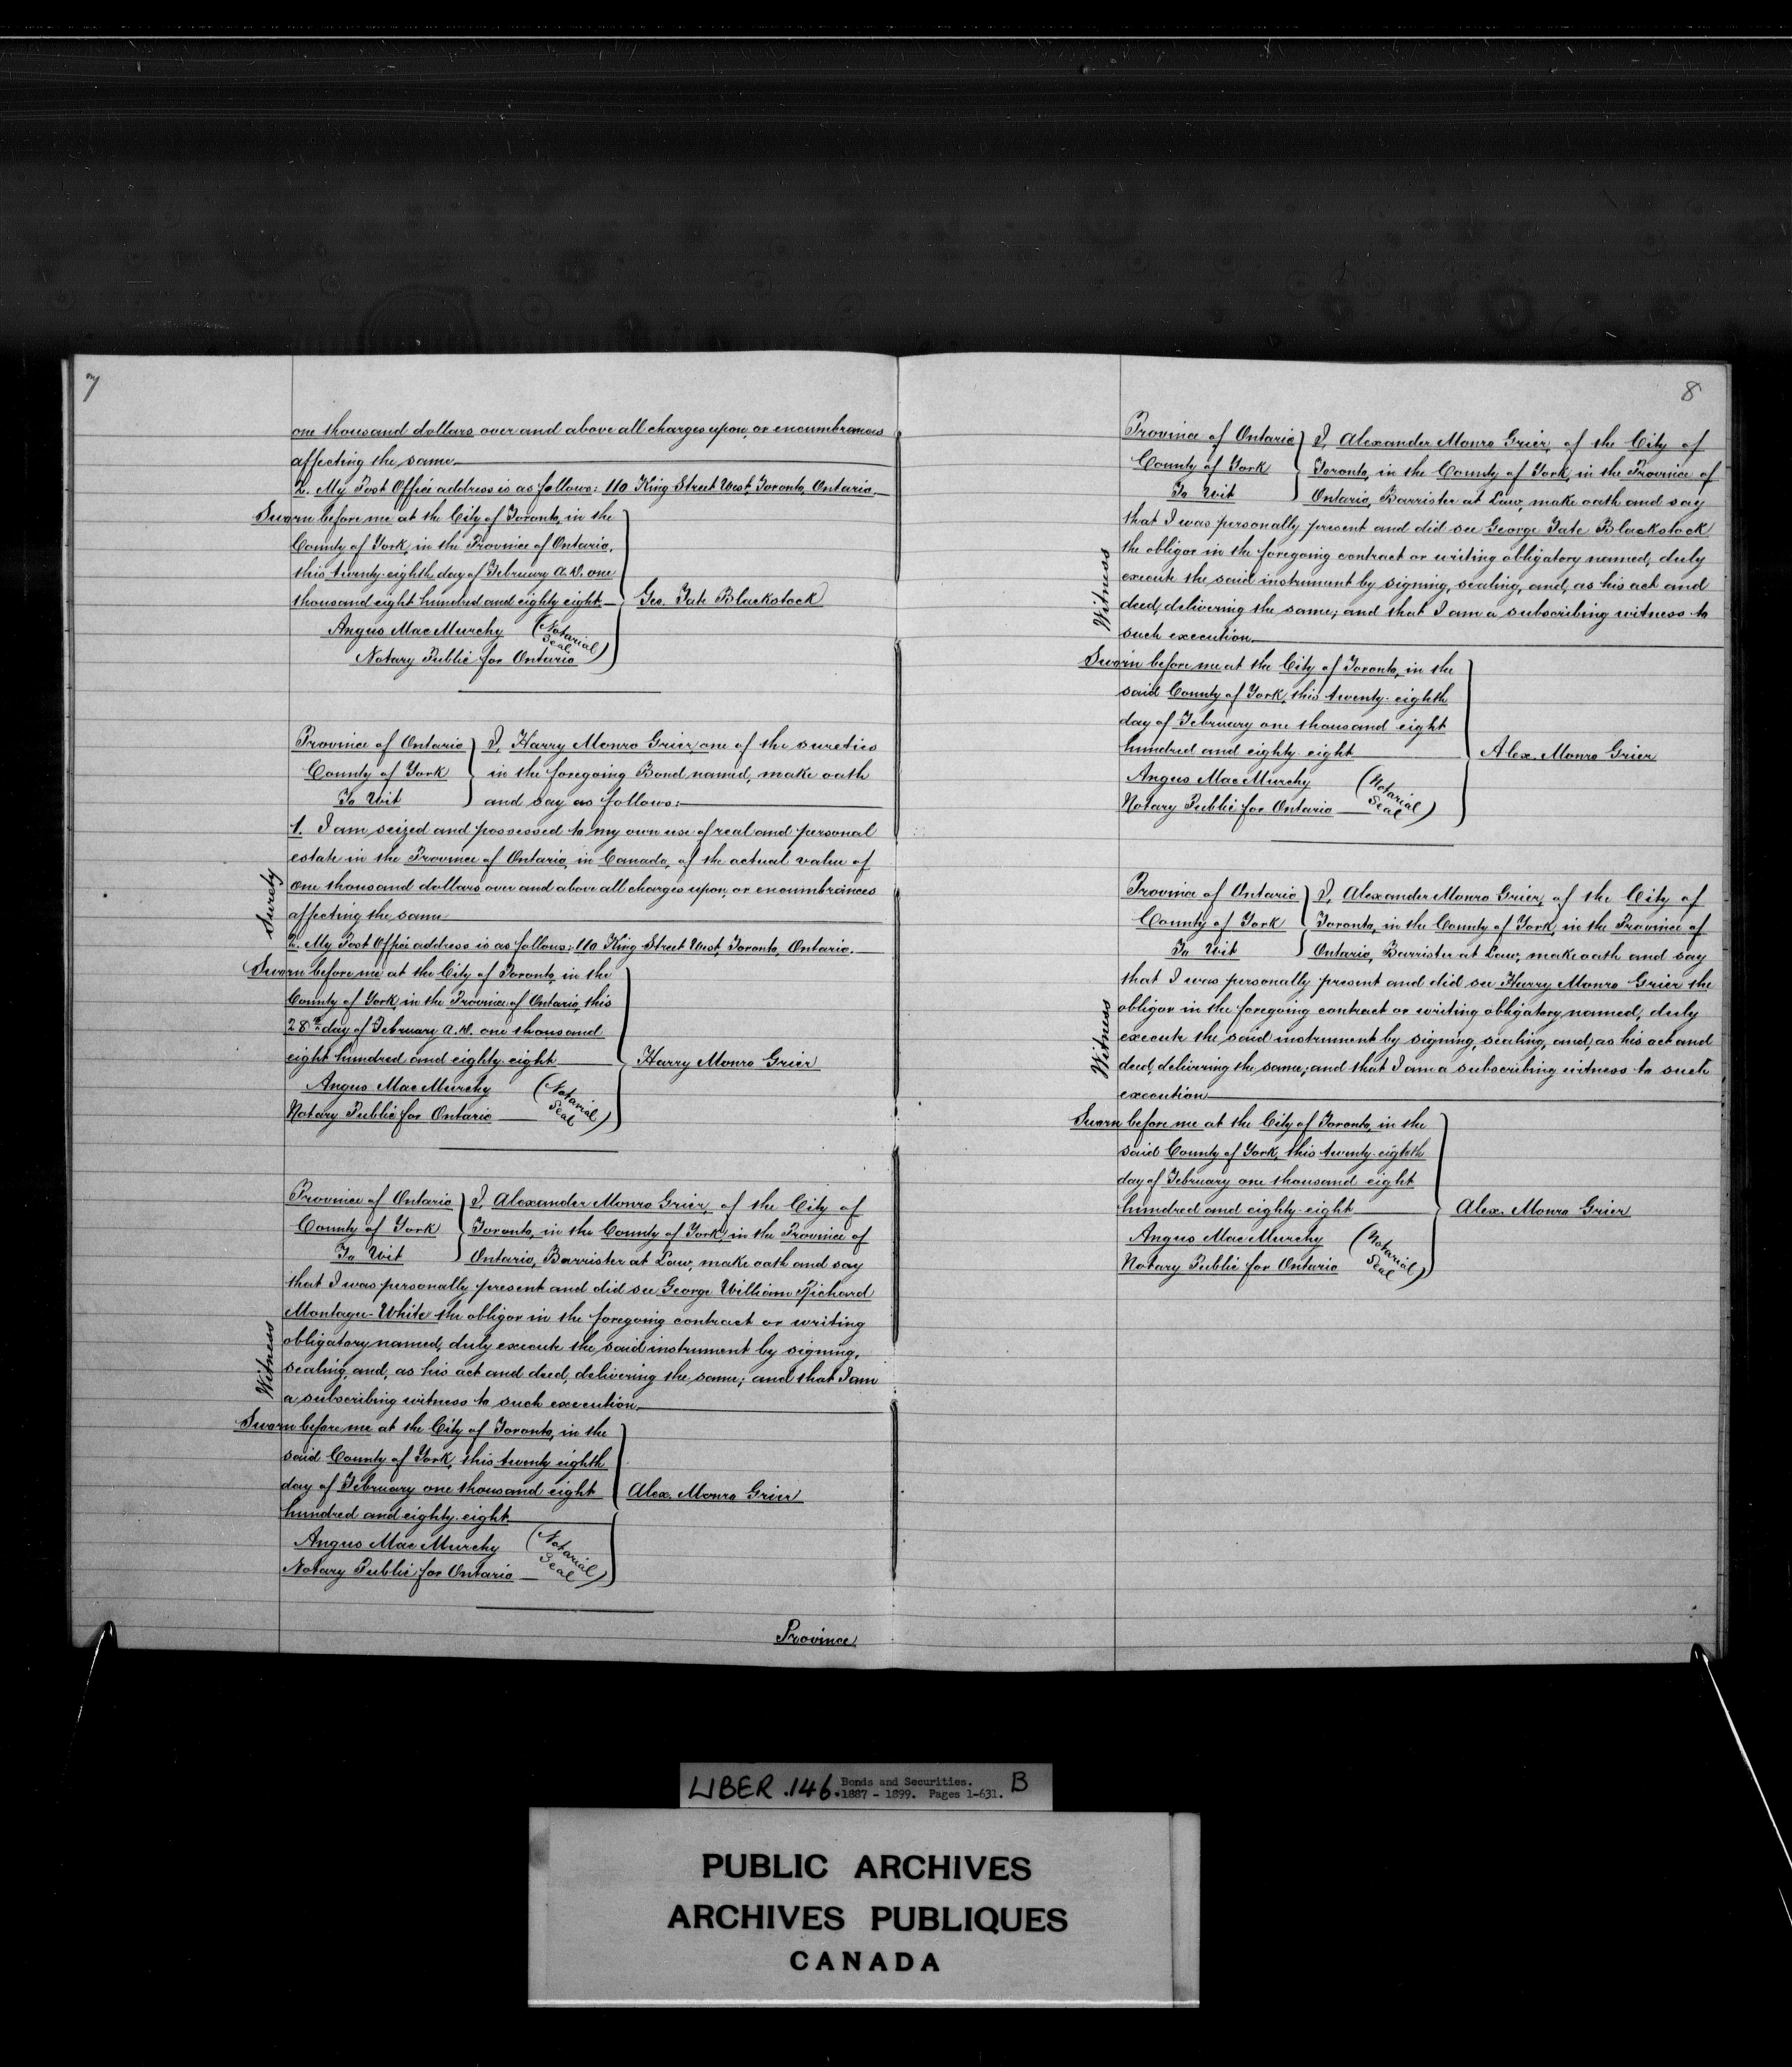 7
one thousand dollars over and above all charges upon, or encumbrances
affecting the same.
2. My Post Office address is as follows: 110 King Street West, Toronto, Ontario.
Sworn before me at the City of Toronto, in the
County of York, in the Province of Ontario,
this twenty eighth day of February A.D. one
thousand eight hundred and eighty eight.
Geo. Tate Blackstock
Angus MacMurchy (Notarial Seal)
Notary Public for Ontario
Province of Ontario
County of York
To Wit
I, Harry Monro Grier, one of the sureties
in the foregoing Bond named, make oath
and say as follows:
Surety
1. I am seized and possessed to my own use of real and personal
estate in the Province of Ontario, in Canada, of the actual value of
one thousand dollars over and above all charges upon, or encumbrances
affecting the same
2. My Post Office address is as follows: 110 King Street West, Toronto, Ontario.
Sworn before me at the City of Toronto, in the
County of York in the Province of Ontario, this
28th day of February A.D. one thousand
eight hundred and eighty eight
Harry Monro Grier
Angus MacMurchy (Notarial Seal)
Notary Public for Ontario
Province of Ontario
County of York
To Wit
I, Alexander Monro Grier, of the City of
Toronto, in the County of York, in the Province of
Ontario, Barrister at Law, make oath and say
Witness
that I was personally present and did see George William Richard
Montagu-White the obligor in the foregoing contract or writing
obligatory named, duly execute the said instrument by signing,
sealing, and, as his act and deed, delivering the same; and that I am
a subscribing witness to such execution.
Sworn before me at the City of Toronto, in the
said County of York, this twenty eighth
day of February one thousand eight
hundred and eighty-eight.
Alex. Monro Grier
Angus MacMurchy (Notarial Seal)
Notary Public for Ontario
Province
8
Province of Ontario
County of York
To Wit
I, Alexander Monro Grier, of the City of
Toronto, in the County of York, in the Province of
Ontario, Barrister at Law, make oath and say
Witness
that I was personally present and did see George Tate Blackstock
the obligor in the foregoing contract or writing obligatory named, duly
execute the said instrument by signing, sealing, and, as his act and
deed, delivering the same; and that I am a subscribing witness to
such execution.
Sworn before me at the City of Toronto, in the
said County of York, this twenty-eighth
day of February one thousand eight
hundred and eighty-eight
Alex. Monro Grier
Angus MacMurchy (Notarial Seal)
Notary Public for Ontario
Province of Ontario
County of York
To Wit
I, Alexander Monro Grier, of the City of
Toronto, in the County of York, in the Province of
Ontario, Barrister at Law, make oath and say
Witness
that I was personally present and did see Harry Monro Grier the
obligor in the foregoing contract or writing obligatory named, duly
execute the said instrument by signing, sealing, and, as his act and
deed, delivering the same; and that I am a subscribing witness to such
execution
Sworn before me at the City of Toronto, in the
said County of York, this twenty-eighth
day of February one thousand eight
hundred and eighty-eight
Alex. Monro Grier
Angus MacMurchy (Notarial Seal)
Notary Public for Ontario
LIBER .146. Bonds and Securities. B
1887 - 1899. Pages 1-631.
PUBLIC ARCHIVES
ARCHIVES PUBLIQUES
CANADA